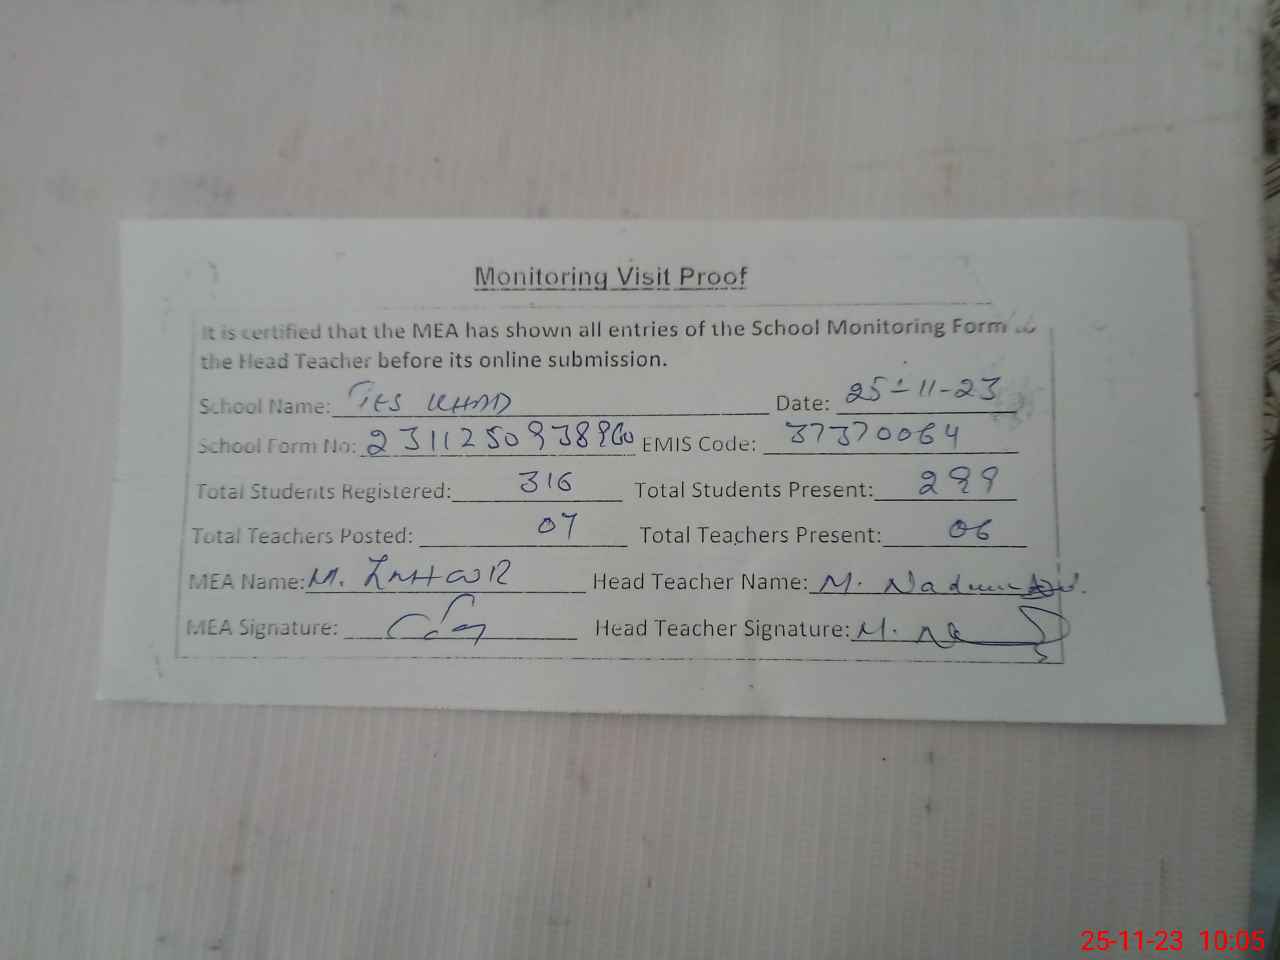 Monitoring Visit Proof
It is certified that the MEA has shown all entries of the School Monitoring Form to
the Head Teacher before its online submission.
School Name: GES KHAD Date: 25-11-23
School Form No: EMIS Code: 37370064
Total Students Registered: 316 Total Students Present: 299
Total Teachers Posted: 07 Total Teachers Present: 06
MEA Name: M. Head Teacher Name: M. Nadeem
MEA Signature: Head Teacher Signature: M.
25-11-23 10:05